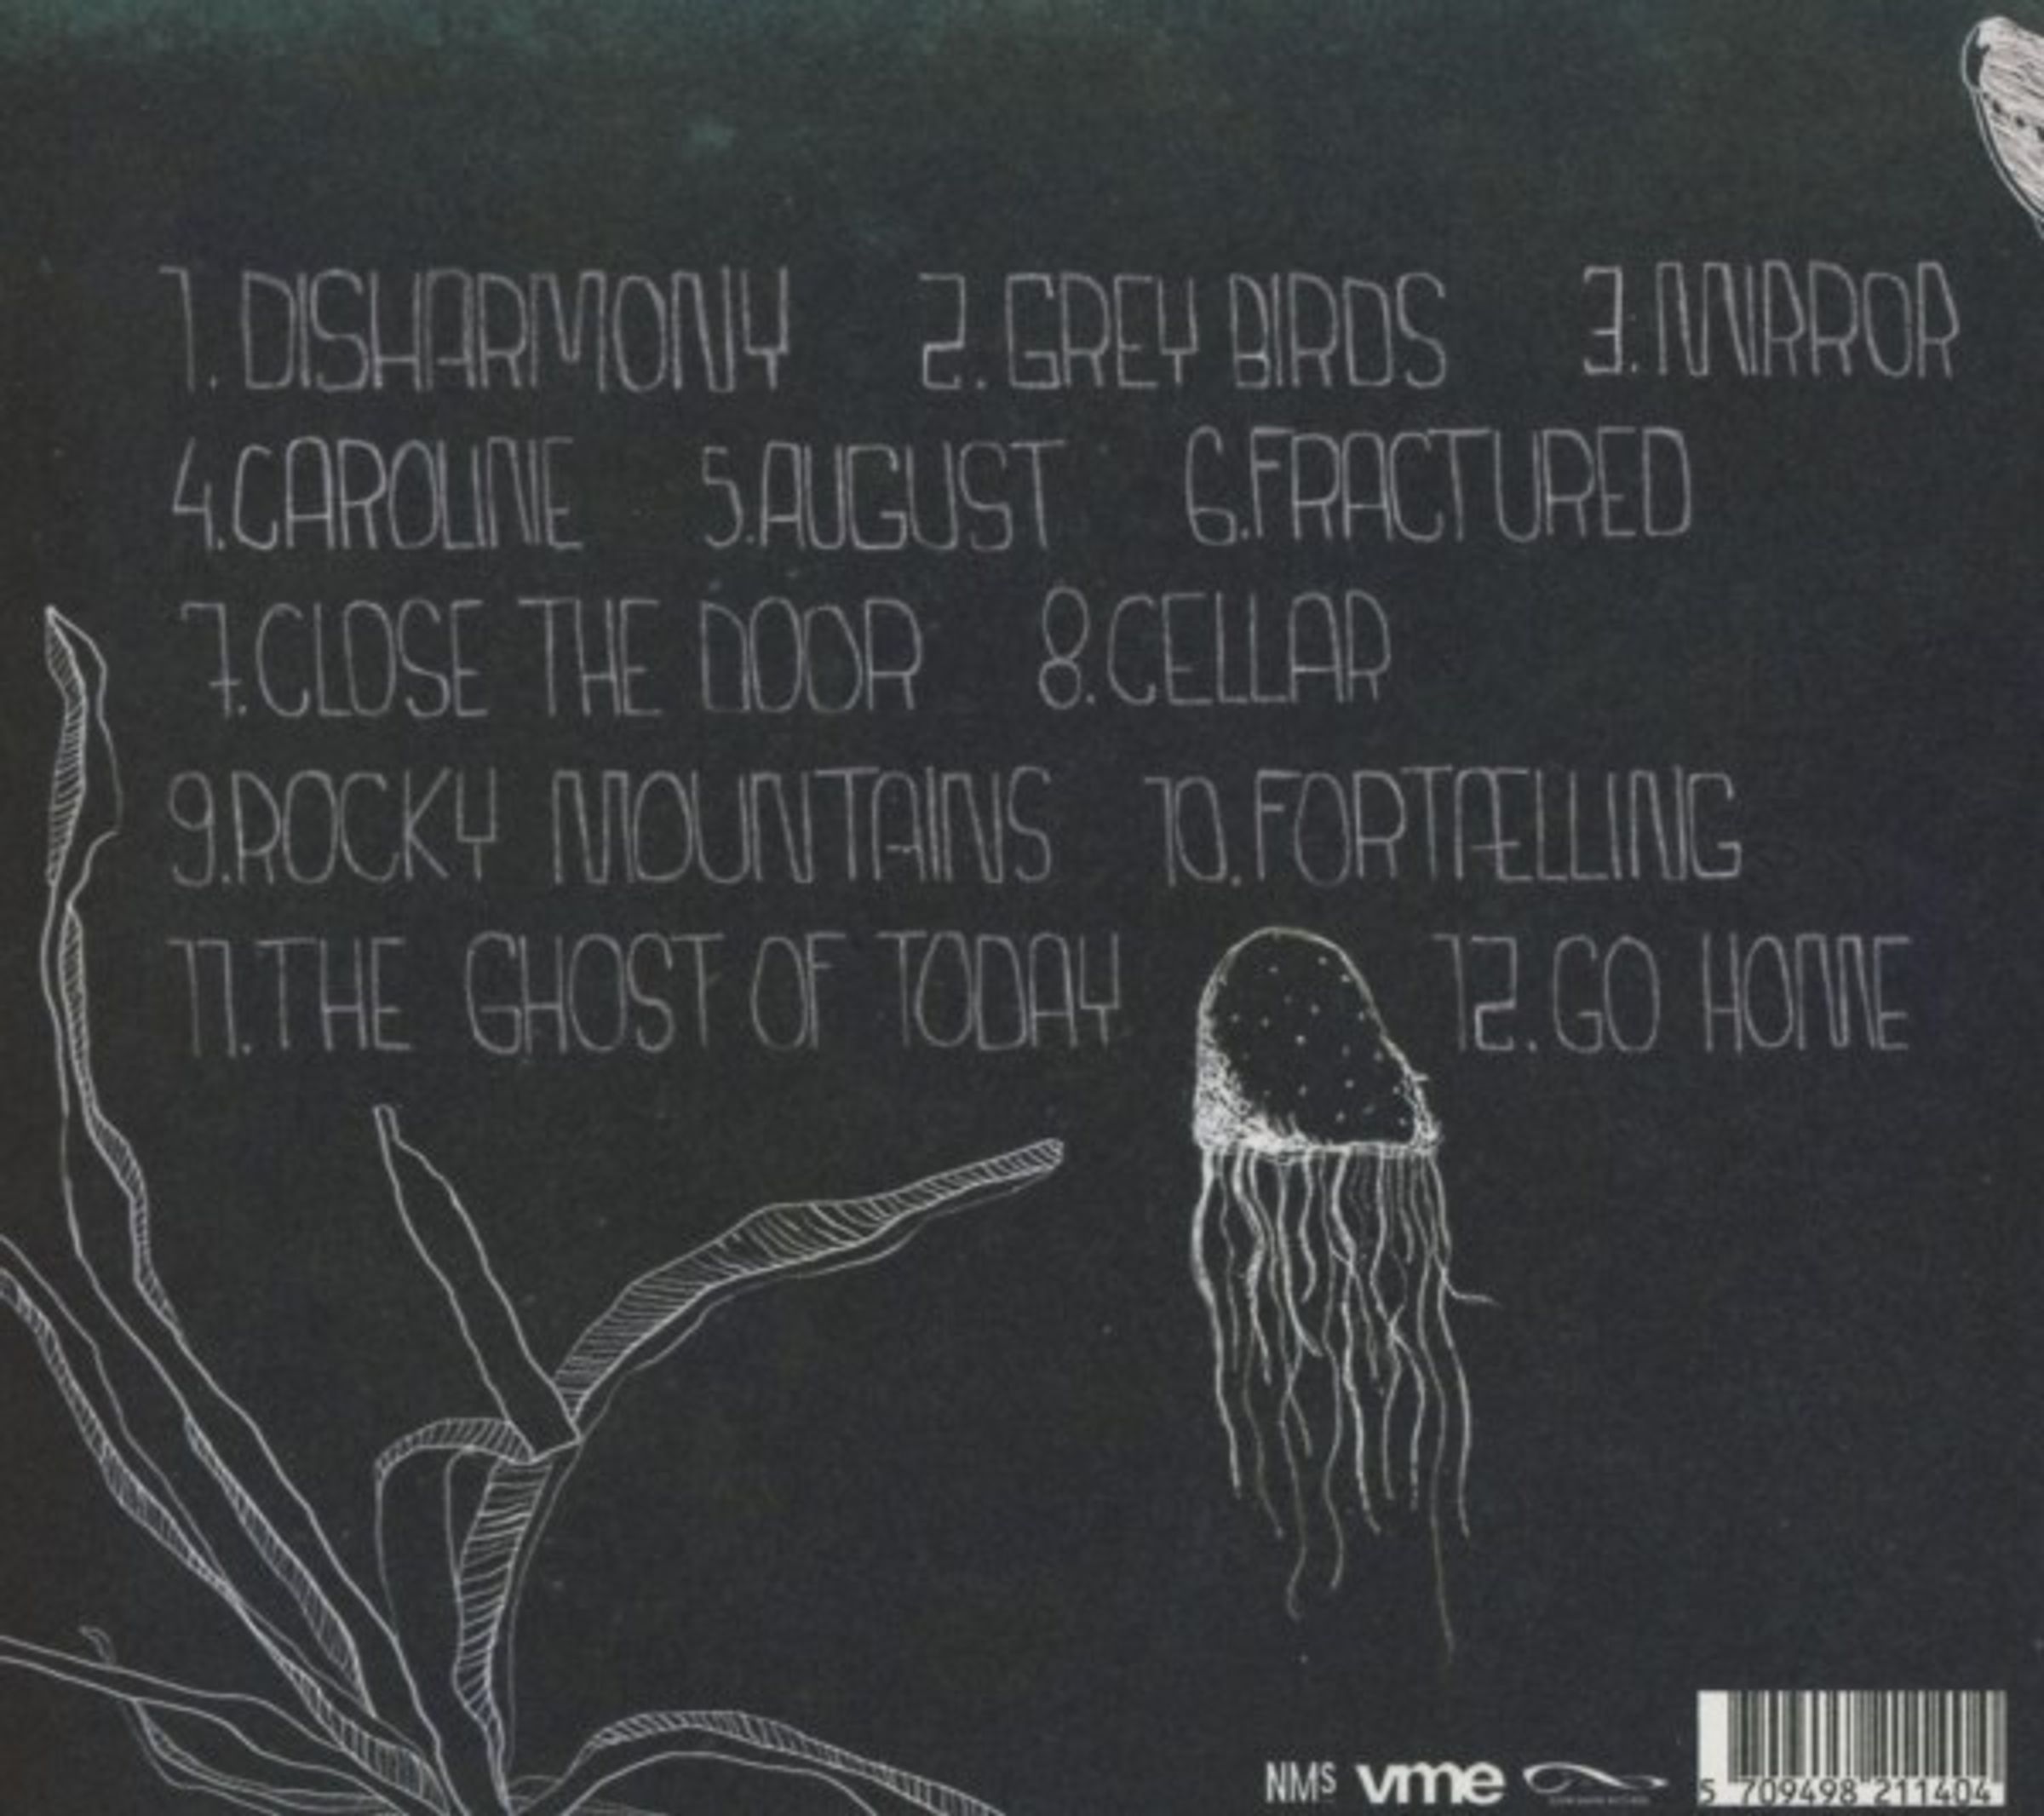 1. DISHARMONY 2. GREY BIRDS 3. MIRROR
4. CAROLINE 5. AUGUST 6. FRACTURED
7. CLOSE THE DOOR 8. CELLAR
9. ROCKY MOUNTAINS 10. FORTÆLLING
11. THE GHOST OF TODAY 12. GO HOME
NMS vme
5 709498 211404